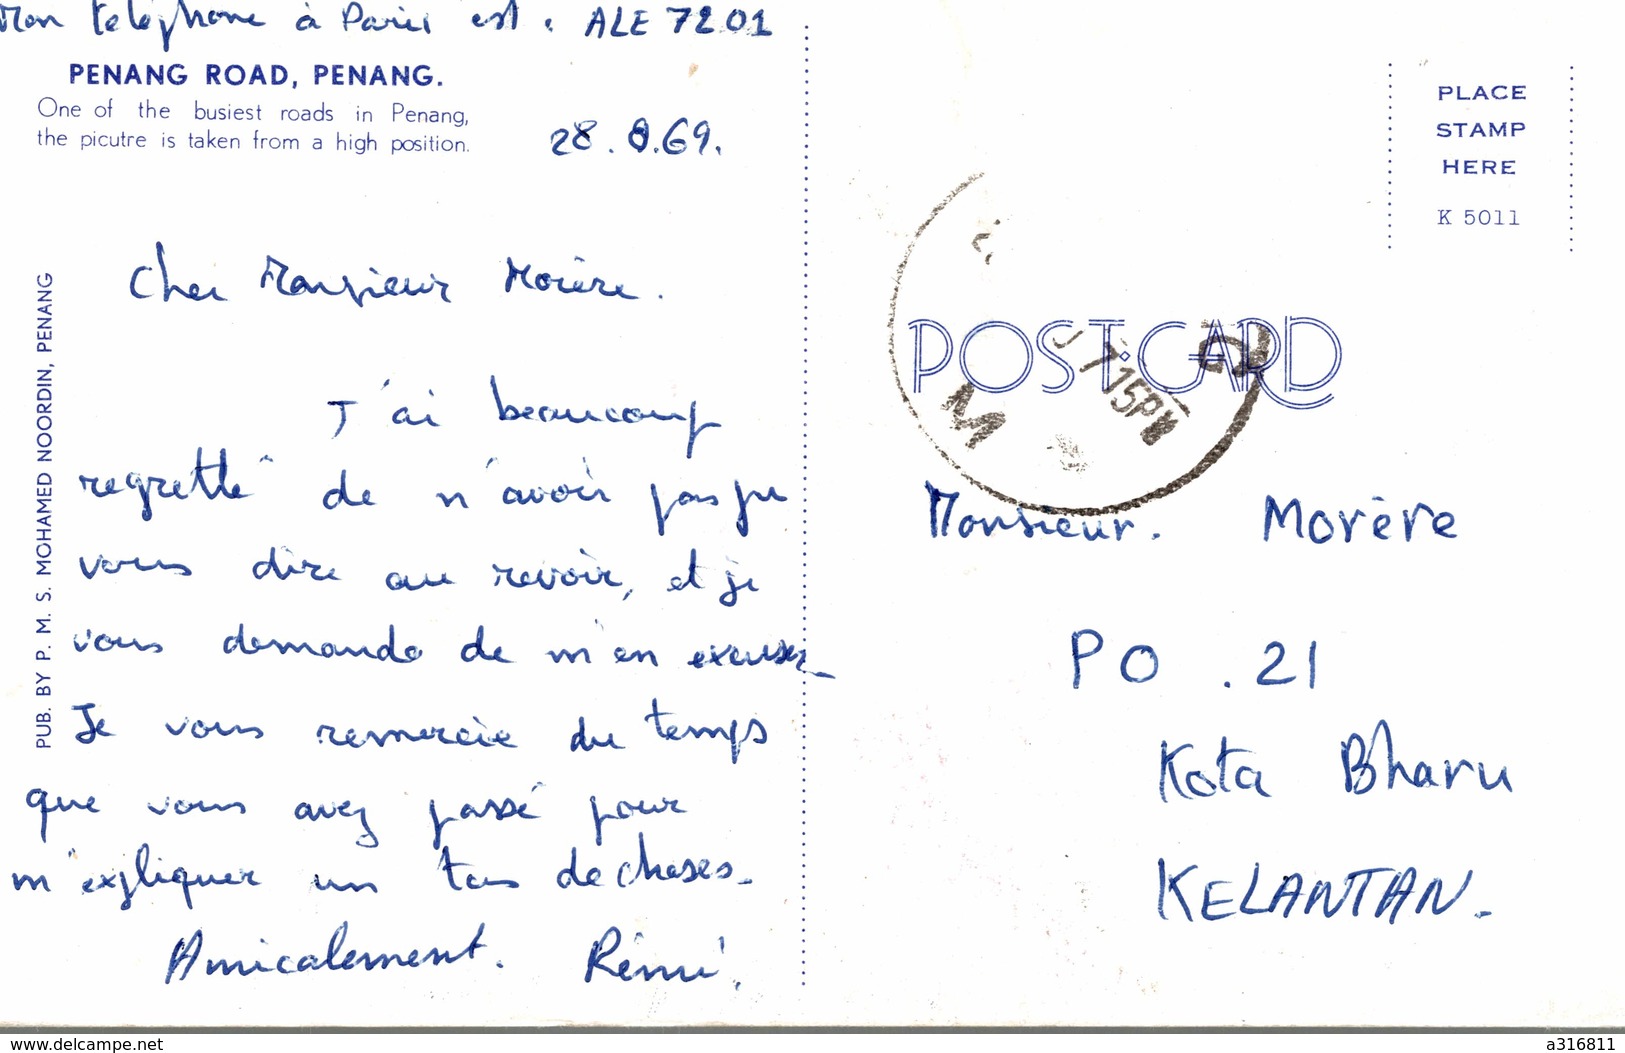 Mon téléphone à Paris est : ALE 7201
PENANG ROAD, PENANG.
One of the busiest roads in Penang,
the picutre is taken from a high position.
28.8.69.
PUB. BY P. M. S. MOHAMED NOORDIN, PENANG
Cher Monsieur Morère.
J'ai beaucoup
regretté de n'avoir pas pu
vous dire au revoir, et je
vous demande de m'en excuser.
Je vous remercie du temps
que vous avez passé pour
m'expliquer un tas de choses.
Amicalement. Rémi.
PLACE
STAMP
HERE
K 5011
POST CARD
15PM
M
Monsieur. Morère
PO . 21
Kota Bharu
KELANTAN.
www.delcampe.net
a316811